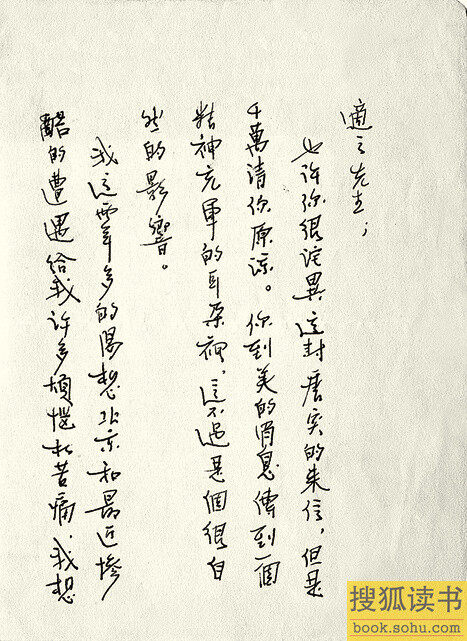 適之先生；
也许你很詫異這封唐突的来信，但是
千萬請你原諒。你到美的消息傳到一個
精神充軍的耳朵裡，這不過是個很自
然的影響。
我這两年多的渴想北京和最近慘
酷的遭遇給我許多煩惱和苦痛．我想
搜狐读书
book.sohu.com